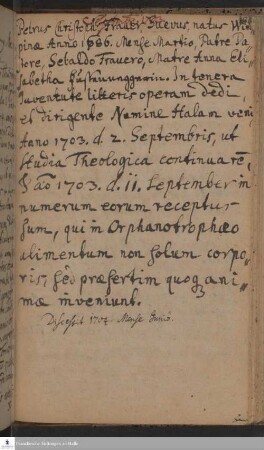 Petrus Christoph Trauer Suevus, natus
pinæ Anno 1686. Mense Martio, Patre Sa
tore, Sebaldo Trauero, Matre Anna Eli,
sabetha In tenera
Iuventute litteris operam dedi
et dirigente Numine Halam veni
Anno 1703. d. 2. Septembris, ut
studia Theologica continuarē,
ao 1703. d. 11. September in
numerum eorum receptus
sum, qui in Orphanotrophæo
alimentum non solum corpo,,
ris, sed præsertim quoq ani,,
mæ inveniunt.
Discessit 1704 Mense Junio.